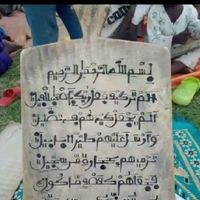 بسم الله الرحمن الرحيم
الم تر كيف فعل ربك باصحب الفيل
الم يجعل كيدهم في تضليل
وارسل عليهم طيرا ابابيل
ترميهم بحجارة من سجيل
فجعلهم كعصف ماكول